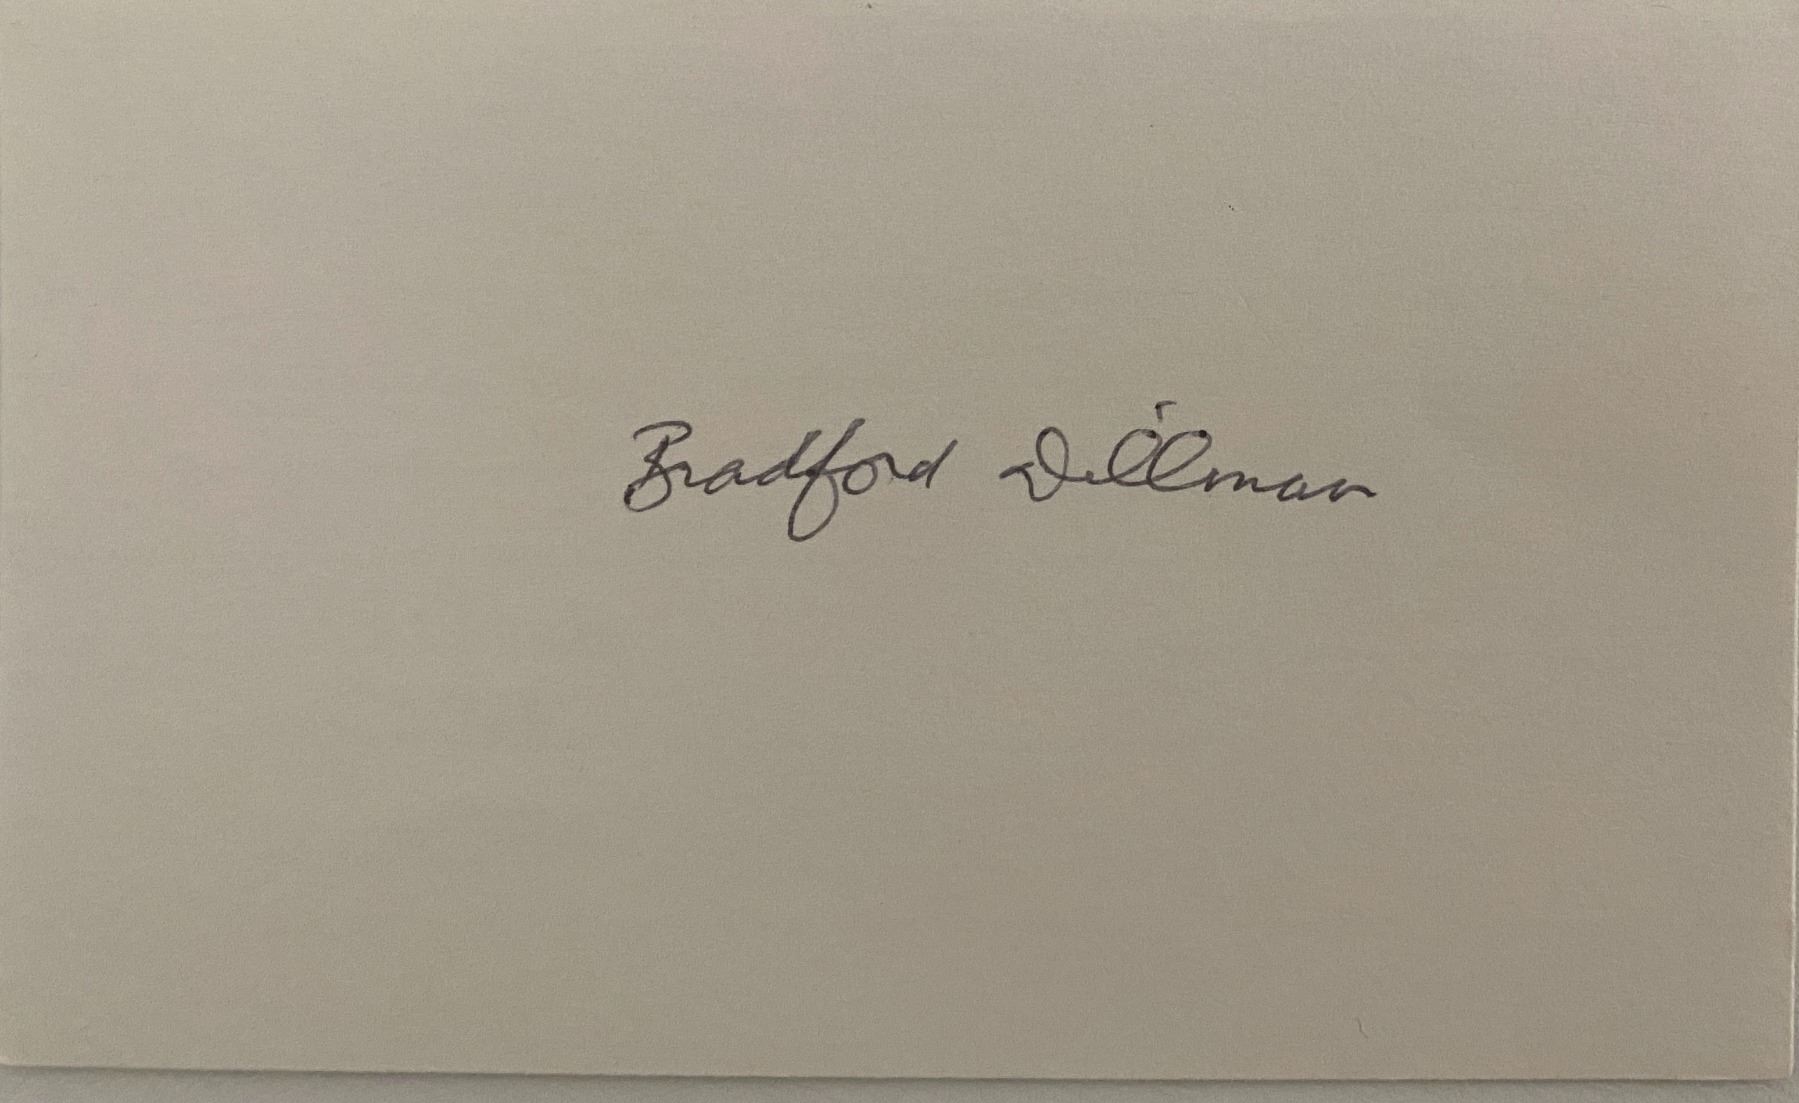 Bradford Dillman